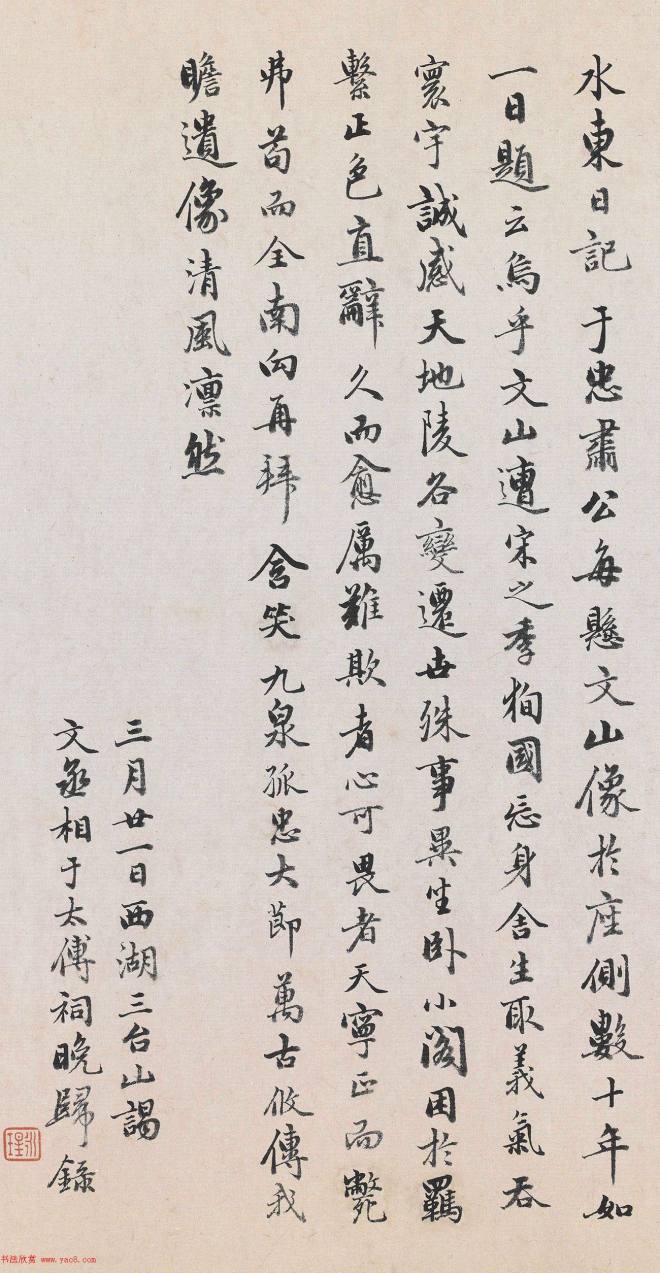 水東日記于忠肅公每懸文山像於座側數十年如
一日題云烏乎文山遭宋之季殉國忘身舍生取義氣吞
寰宇誠感天地陵谷變遷世殊事異坐卧小閣困於羈
繫正色直辭久而愈厲難欺者心可畏者天寧正而斃
弗苟而全南向再拜含笑九泉孤忠大節萬古攸傳我
瞻遺像清風凛然
三月廿一日西湖三台山謁
文丞相于太傅祠晚歸錄
书法欣赏 www.yac8.com